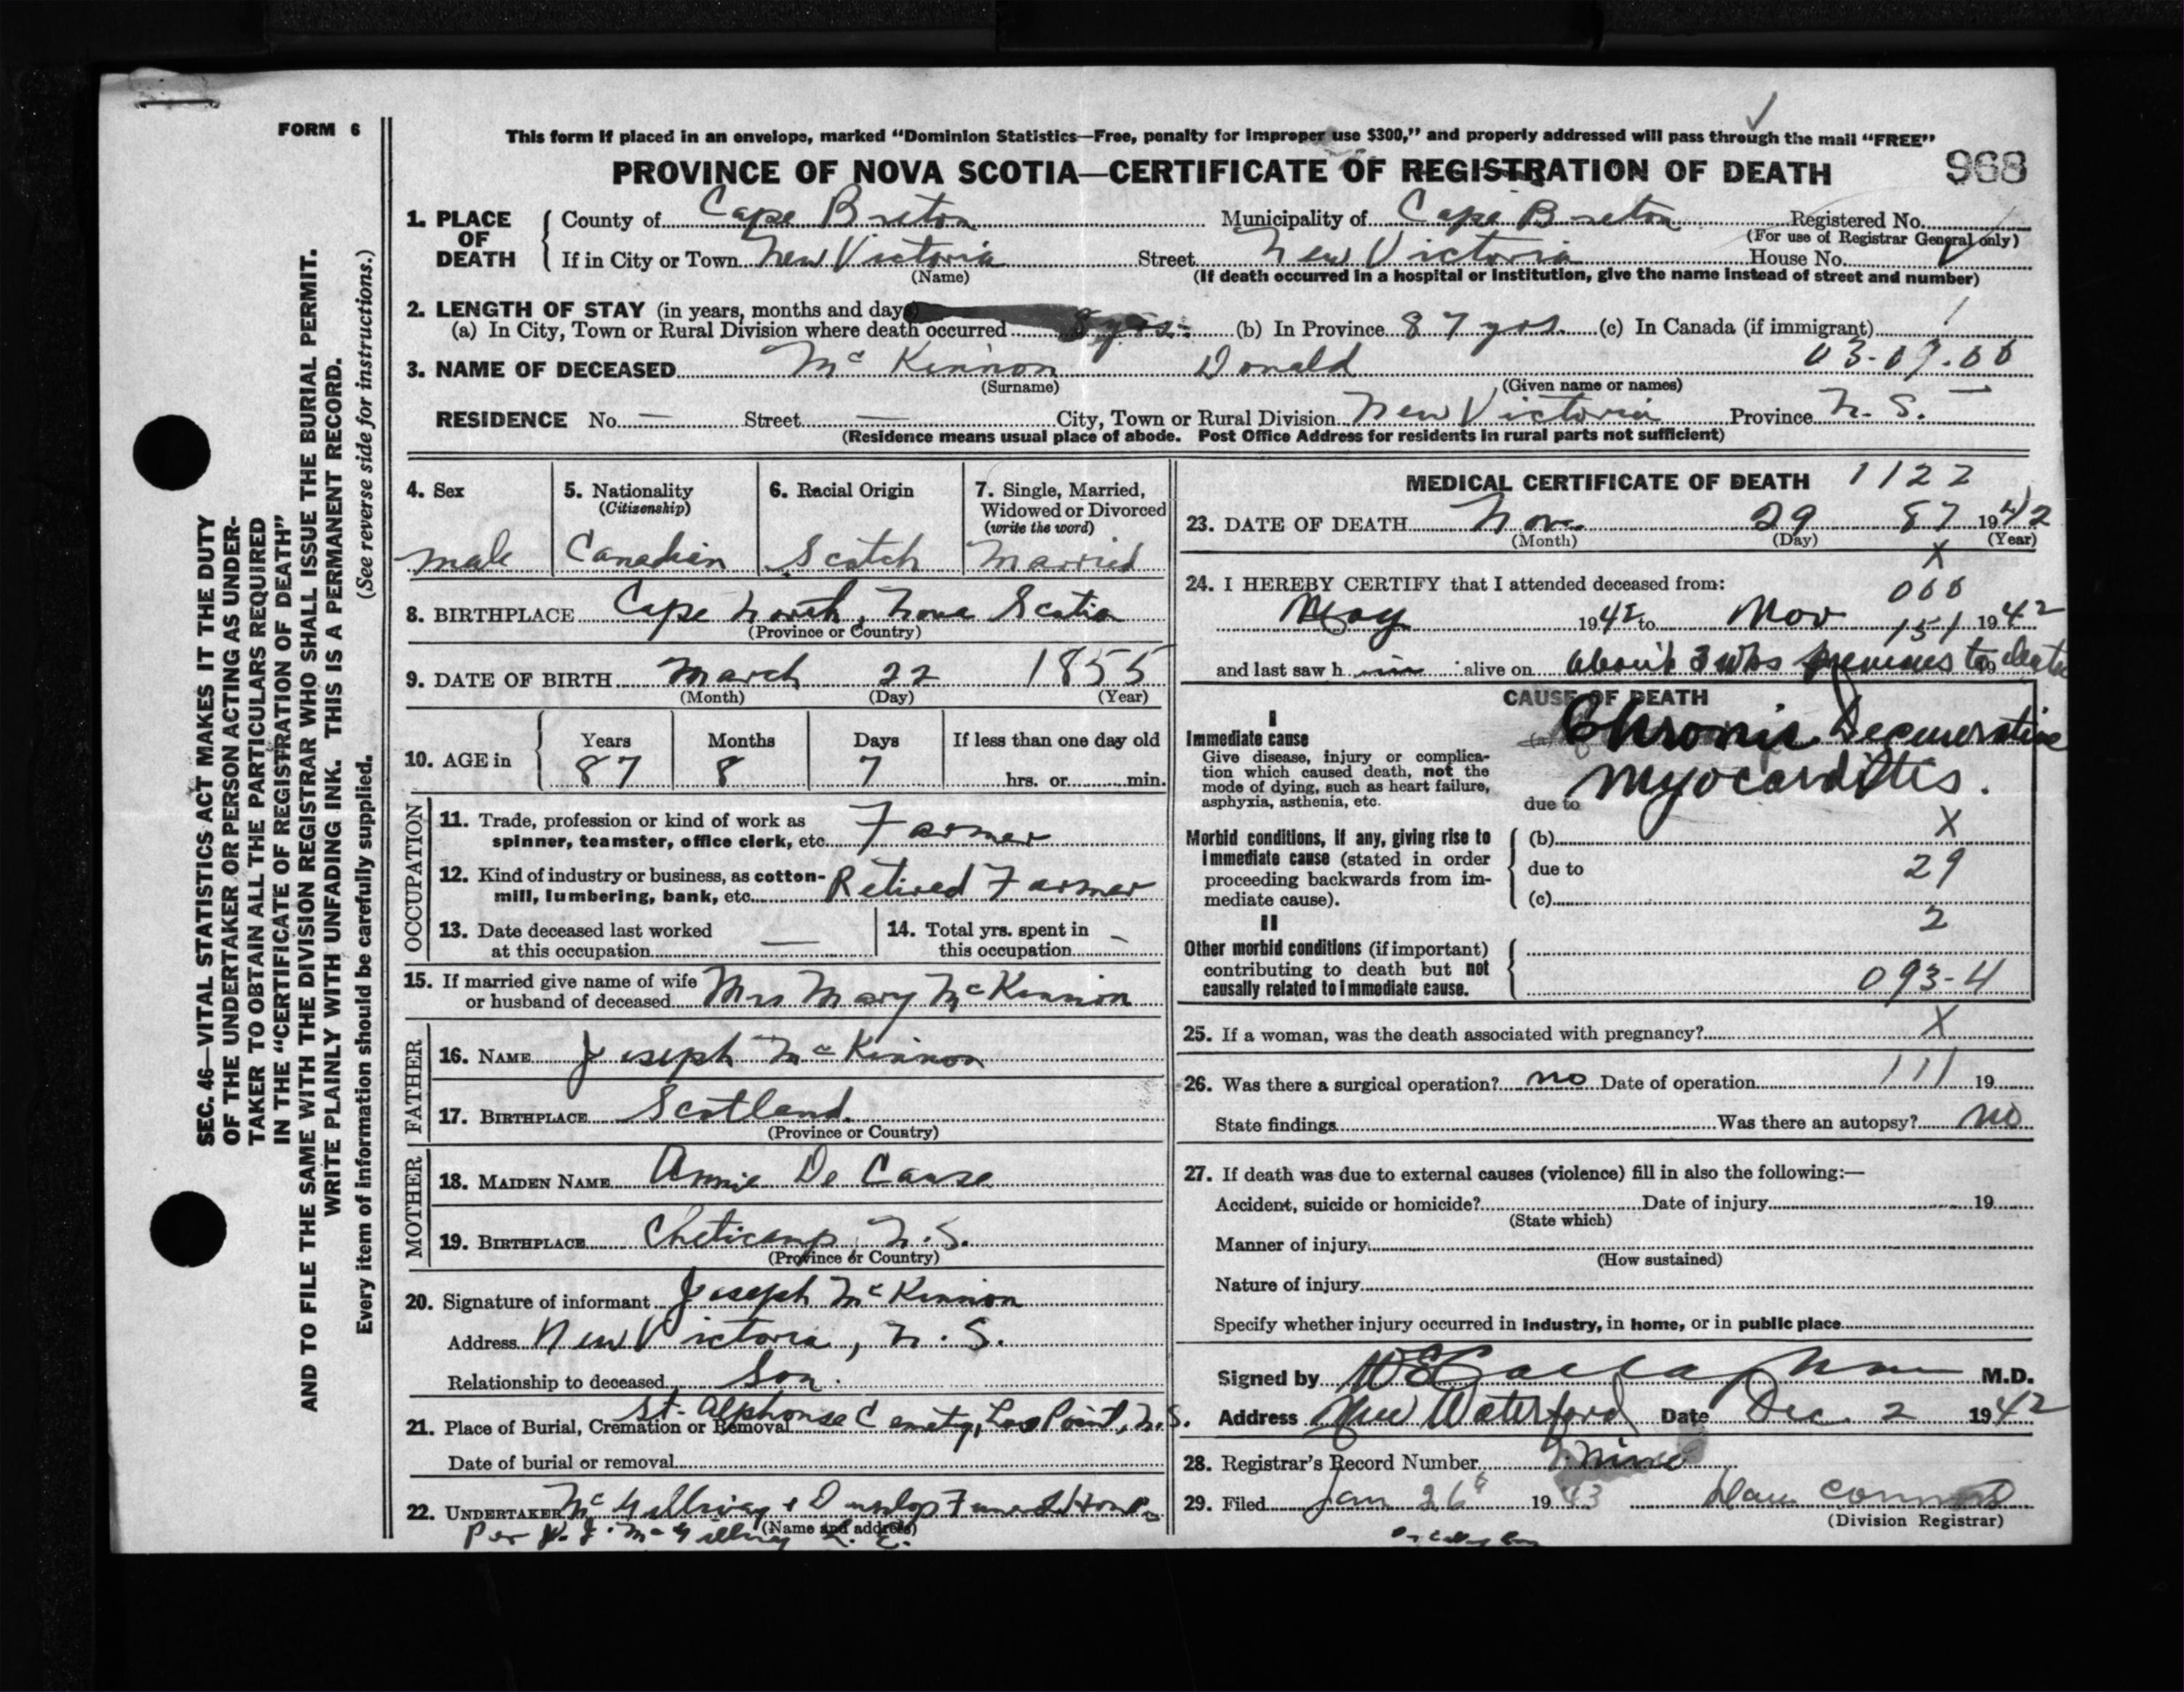 FORM 6
This form if placed in an envelope, marked “Dominion Statistics—Free, penalty for improper use $300,” and properly addressed will pass through the mail “FREE”
PROVINCE OF NOVA SCOTIA—CERTIFICATE OF REGISTRATION OF DEATH 968
1. PLACE OF DEATH County of Cape Breton Municipality of Cape Breton Registered No.
(For use of Registrar General only)
If in City or Town New Victoria Street New Victoria House No.
(Name) (If death occurred in a hospital or institution, give the name instead of street and number)
2. LENGTH OF STAY (in years, months and days)
(a) In City, Town or Rural Division where death occurred 8 yrs. (b) In Province 87 yrs. (c) In Canada (if immigrant)
3. NAME OF DECEASED Mc Kinnon Donald 03-09.00
(Surname) (Given name or names)
RESIDENCE No. — Street — City, Town or Rural Division New Victoria Province N. S.
(Residence means usual place of abode. Post Office Address for residents in rural parts not sufficient)
4. Sex 5. Nationality (Citizenship) 6. Racial Origin 7. Single, Married, Widowed or Divorced (write the word)
male Canadian Scotch Married
8. BIRTHPLACE Cape North, Nova Scotia
(Province or Country)
9. DATE OF BIRTH March 22 1855
(Month) (Day) (Year)
10. AGE in Years Months Days If less than one day old
87 8 7 hrs. or min.
OCCUPATION
11. Trade, profession or kind of work as
spinner, teamster, office clerk, etc. Farmer
12. Kind of industry or business, as cotton-
mill, lumbering, bank, etc. Retired Farmer
13. Date deceased last worked
at this occupation —
14. Total yrs. spent in
this occupation —
15. If married give name of wife
or husband of deceased Mrs Mary McKinnion
FATHER
16. NAME Joseph Mc Kinnon
17. BIRTHPLACE Scotland
(Province or Country)
MOTHER
18. MAIDEN NAME Annie De Carse
19. BIRTHPLACE Cheticamp N. S.
(Province or Country)
20. Signature of informant Joseph McKinnion
Address New Victoria, N. S.
Relationship to deceased Son.
21. Place of Burial, Cremation or Removal St. Alphonse Cemetry, Low Point, N.S.
Date of burial or removal
22. UNDERTAKER McGillivray & Dunlop Funeral Home
(Name and address)
Per J. J. McGillivray
MEDICAL CERTIFICATE OF DEATH 1122
23. DATE OF DEATH Nov. 29 87 1942
(Month) (Day) (Year)
X
24. I HEREBY CERTIFY that I attended deceased from:
000
May 1942 to Nov 151 1942
and last saw h im alive on about 3 wks previous to death 19
CAUSE OF DEATH
I
Immediate cause
Give disease, injury or complica-
tion which caused death, not the
mode of dying, such as heart failure,
asphyxia, asthenia, etc.
(a) Chronic Degenerative
Myocarditis.
due to
Morbid conditions, if any, giving rise to
immediate cause (stated in order
proceeding backwards from im-
mediate cause).
(b) X
due to 29
(c)
2
II
Other morbid conditions (if important)
contributing to death but not
causally related to immediate cause.
093-4
25. If a woman, was the death associated with pregnancy? X
26. Was there a surgical operation? no Date of operation 111 19
State findings Was there an autopsy? no
27. If death was due to external causes (violence) fill in also the following:—
Accident, suicide or homicide? Date of injury 19
(State which)
Manner of injury
(How sustained)
Nature of injury
Specify whether injury occurred in industry, in home, or in public place
Signed by M.D.
Address New Waterford Date Dec. 2 1942
28. Registrar's Record Number
29. Filed Jan 26 1943 Dan
(Division Registrar)
SEC. 46—VITAL STATISTICS ACT MAKES IT THE DUTY
OF THE UNDERTAKER OR PERSON ACTING AS UNDER-
TAKER TO OBTAIN ALL THE PARTICULARS REQUIRED
IN THE “CERTIFICATE OF REGISTRATION OF DEATH”
AND TO FILE THE SAME WITH THE DIVISION REGISTRAR WHO SHALL ISSUE THE BURIAL PERMIT.
WRITE PLAINLY WITH UNFADING INK. THIS IS A PERMANENT RECORD.
Every item of information should be carefully supplied. (See reverse side for instructions.)